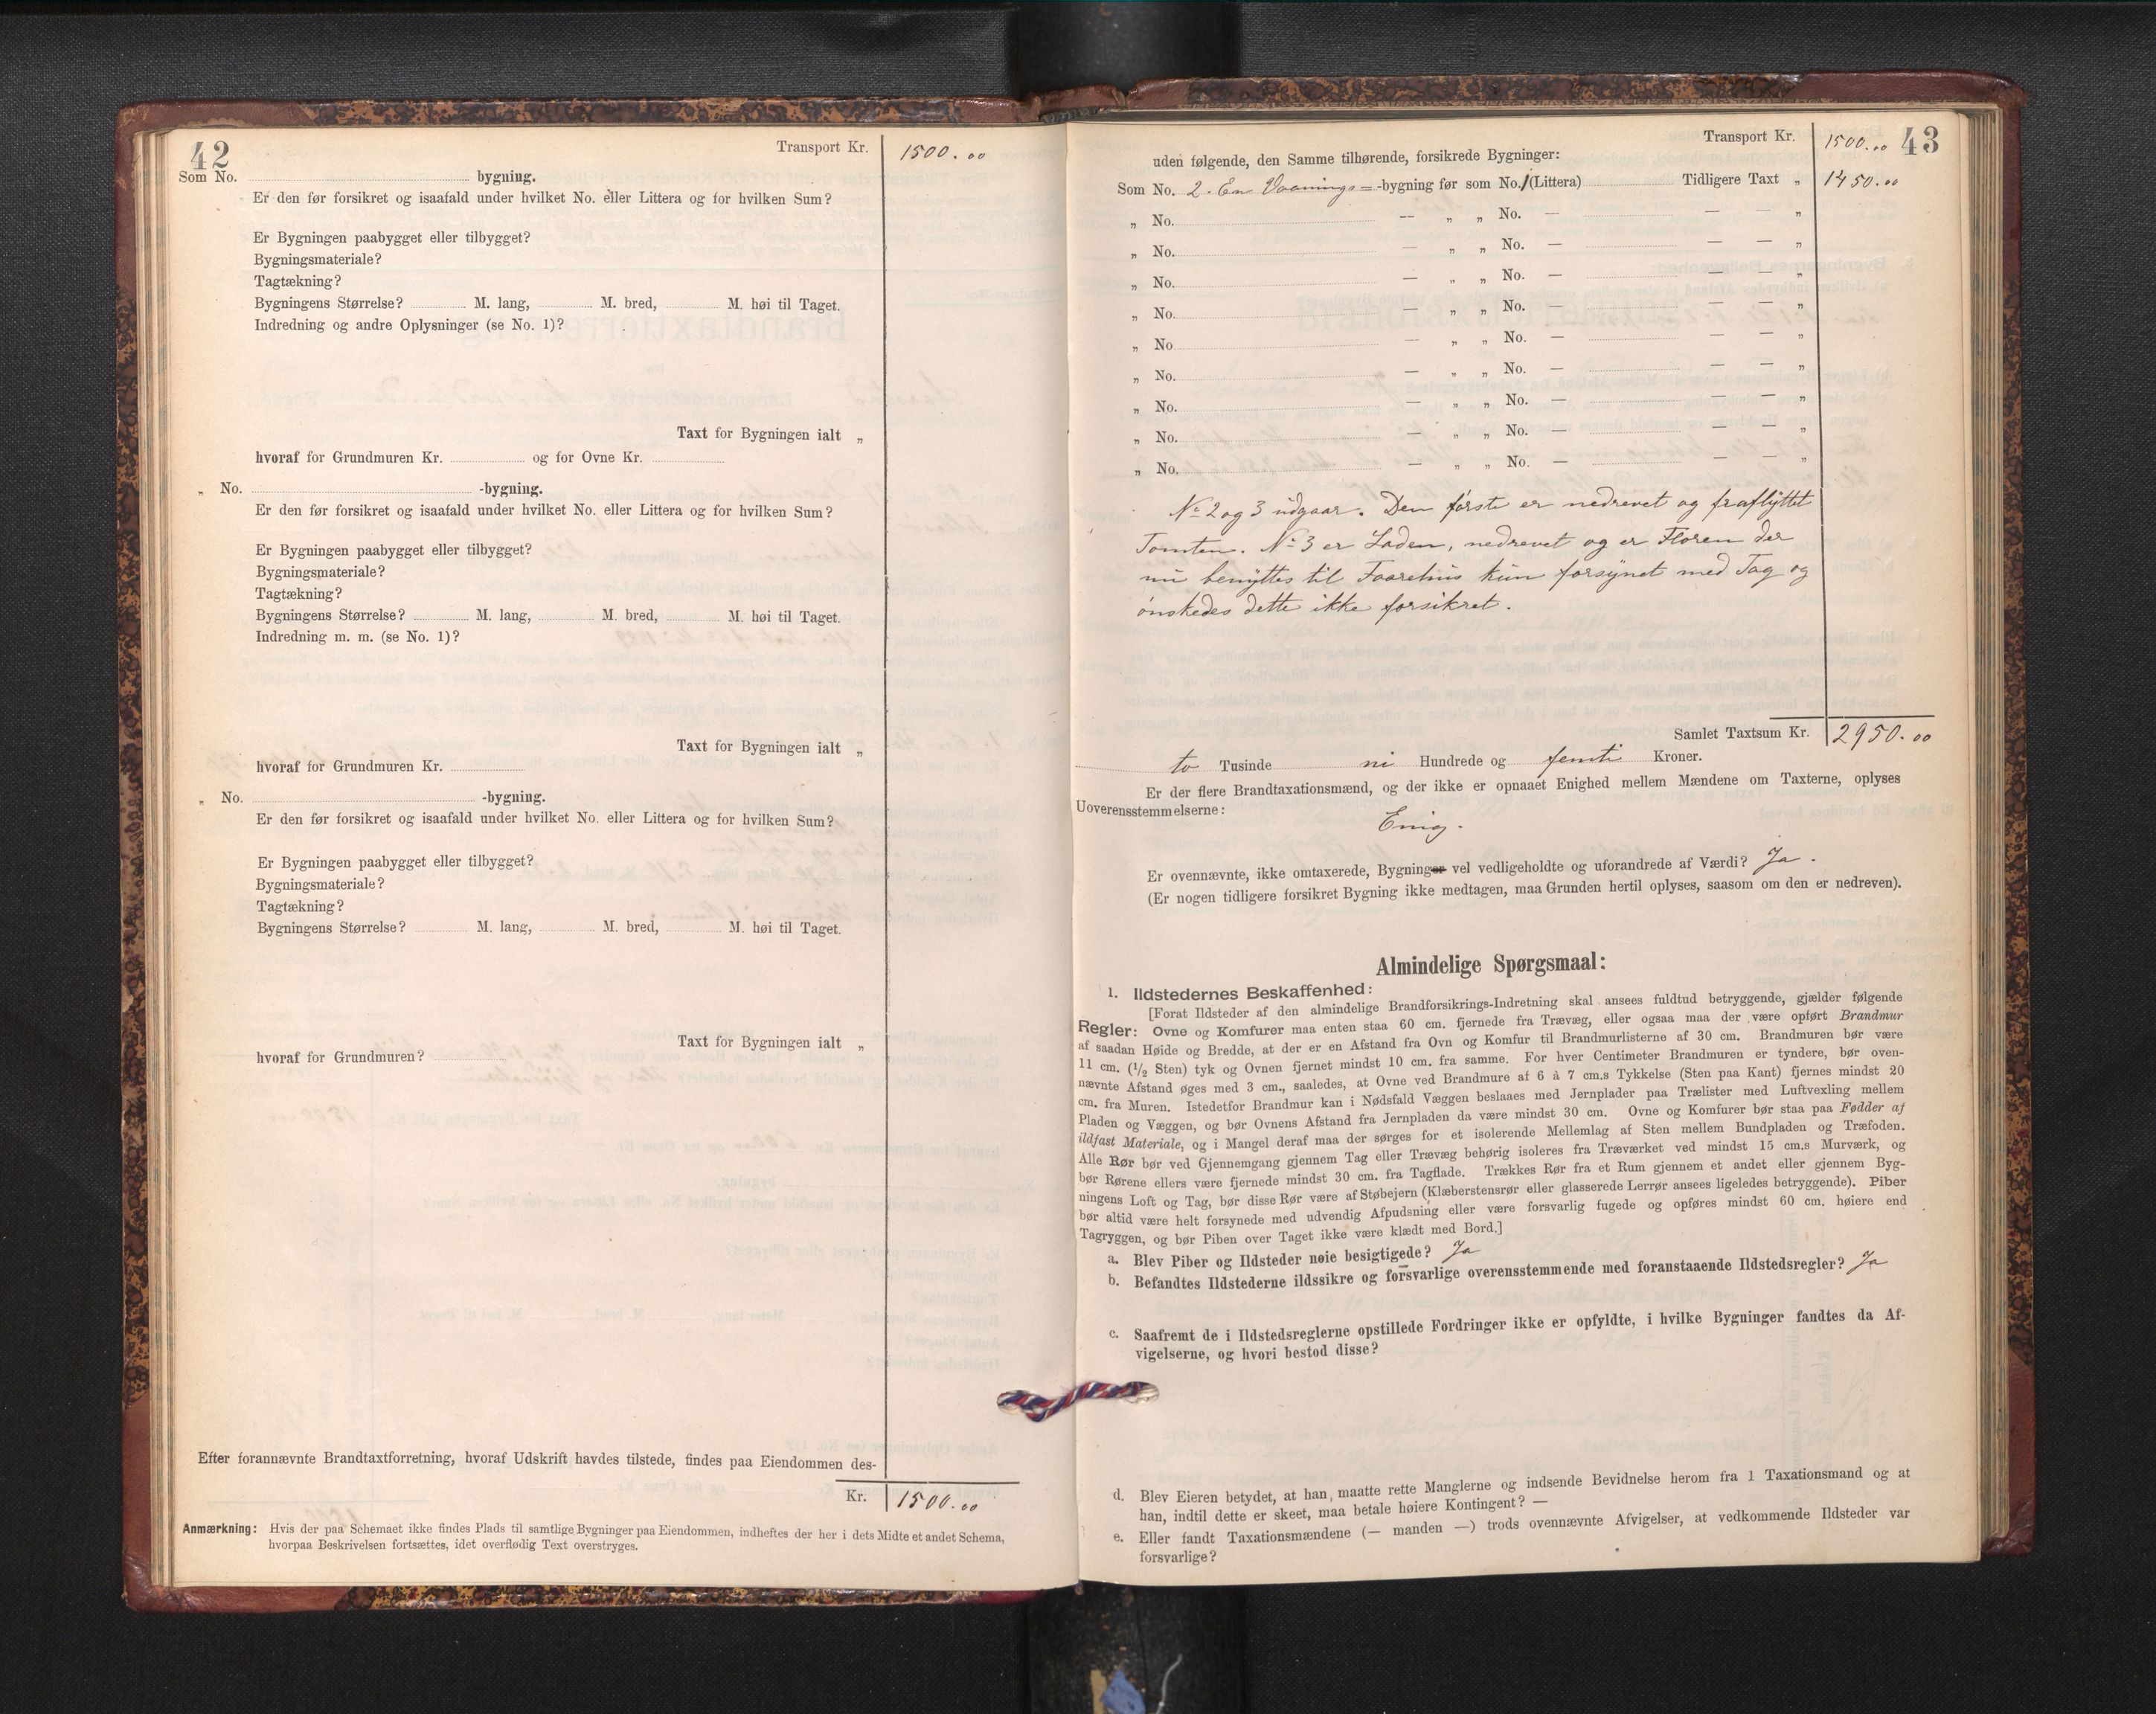 42
Transport Kr. 1500.00
Som No. bygning.
Er den før forsikret og isaafald under hvilket No. eller Littera og for hvilken Sum?
Er Bygningen paabygget eller tilbygget?
Bygningsmateriale?
Tagtækning?
Bygningens Størrelse? M. lang, M. bred, M. høi til Taget.
Indredning og andre Oplysninger (se No. 1)?
Taxt for Bygningen ialt „
hvoraf for Grundmuren Kr. og for Ovne Kr.
„ No. -bygning.
Er den før forsikret og isaafald under hvilket No. eller Littera og for hvilken Sum?
Er Bygningen paabygget eller tilbygget?
Bygningsmateriale?
Tagtækning?
Bygningens Størrelse? M. lang, M. bred, M. høi til Taget.
Indredning m. m. (se No. 1)?
Taxt for Bygningen ialt „
hvoraf for Grundmuren Kr.
„ No. -bygning.
Er den før forsikret og isaafald under hvilket No. eller Littera og for hvilken Sum?
Er Bygningen paabygget eller tilbygget?
Bygningsmateriale?
Tagtækning?
Bygningens Størrelse? M. lang, M. bred, M. høi til Taget.
Taxt for Bygningen ialt „
hvoraf for Grundmuren?
Efter forannævnte Brandtaxtforretning, hvoraf Udskrift havdes tilstede, findes paa Eiendommen des-
Kr. 1500.00
Anmærkning: Hvis der paa Schemaet ikke findes Plads til samtlige Bygninger paa Eiendommen, indheftes der her i dets Midte et andet Schema,
hvorpaa Beskrivelsen fortsættes, idet overflødig Text overstryges.
43
Transport Kr. 1500.00
uden følgende, den Samme tilhørende, forsikrede Bygninger:
Som No. 2. En Vaanings= -bygning før som No. 1 (Littera) Tidligere Taxt „ 1450.00
„ No. — „ „ No. — — — „
„ No. — „ „ No. — — — „
„ No. — „ „ No. — — — „
„ No. — „ „ No. — — — „
„ No — „ „ No. — — — „
„ No. — „ „ No. — — — „
„ No. — „ „ No. — — — „
„ No. — „ „ No. — — — „
„ No. — „ „ No. — — — „
No 2 og 3 udgaar. Den første er nedrevet og fraflyttet
Tomten. No 3 er Laden, nedrevet og er Floren der
nu benyttes til Faarehus kun forsynet med Tag og
ønskedes dette ikke forsikret.
Samlet Taxtsum Kr. 2950.00
to Tusinde ni Hundrede og femti Kroner.
Er der flere Brandtaxationsmænd, og der ikke er opnaaet Enighed mellem Mændene om Taxterne, oplyses
Uoverensstemmelserne:
Enig.
Er ovennævnte, ikke omtaxerede, Bygninger vel vedligeholdte og uforandrede af Værdi? Ja.
(Er nogen tidligere forsikret Bygning ikke medtagen, maa Grunden hertil oplyses, saasom om den er nedreven).
Almindelige Spørgsmaal:
1. Ildstedernes Beskaffenhed:
[Forat Ildsteder af den almindelige Brandforsikrings-Indretning skal ansees fuldtud betryggende, gjælder følgende
Regler: Ovne og Komfurer maa enten staa 60 cm. fjernede fra Trævæg, eller ogsaa maa der være opført Brandmur
af saadan Høide og Bredde, at der er en Afstand fra Ovn og Komfur til Brandmurlisterne af 30 cm. Brandmuren bør være
11 cm. (1/2 Sten) tyk og Ovnen fjernet mindst 10 cm. fra samme. For hver Centimeter Brandmuren er tyndere, bør oven-
nævnte Afstand øges med 3 cm., saaledes, at Ovne ved Brandmure af 6 à 7 cm.s Tykkelse (Sten paa Kant) fjernes mindst 20
cm. fra Muren. Istedetfor Brandmur kan i Nødsfald Væggen beslaaes med Jernplader paa Trælister med Luftvexling mellem
Pladen og Væggen, og bør Ovnens Afstand fra Jernpladen da være mindst 30 cm. Ovne og Komfurer bør staa paa Fødder af
ildfast Materiale, og i Mangel deraf maa der sørges for et isolerende Mellemlag af Sten mellem Bundpladen og Træfoden.
Alle Rør bør ved Gjennemgang gjennem Tag eller Trævæg behørig isoleres fra Træværket ved mindst 15 cm.s Murværk, og
bør Rørene ellers være fjernede mindst 30 cm. fra Tagflade. Trækkes Rør fra et Rum gjennem et andet eller gjennem Byg-
ningens Loft og Tag, bør disse Rør være af Støbejern (Klæberstensrør eller glasserede Lerrør ansees ligeledes betryggende). Piber
bør altid være helt forsynede med udvendig Afpudsning eller være forsvarlig fugede og opføres mindst 60 cm. høiere end
Tagryggen, og bør Piben over Taget ikke være klædt med Bord.]
a. Blev Piber og Ildsteder nøie besigtigede? Ja
b. Befandtes Ildstederne ildssikre og forsvarlige overensstemmende med foranstaaende Ildstedsregler? Ja
c. Saafremt de i Ildstedsreglerne opstillede Fordringer ikke er opfyldte, i hvilke Bygninger fandtes da Af-
vigelserne, og hvori bestod disse?
d. Blev Eieren betydet, at han maatte rette Manglerne og indsende Bevidnelse herom fra 1 Taxationsmand og at
han, indtil dette er skeet, maa betale høiere Kontingent? —
e. Eller fandt Taxationsmændene (— manden —) trods ovennævnte Afvigelser, at vedkommende Ildsteder var
forsvarlige?